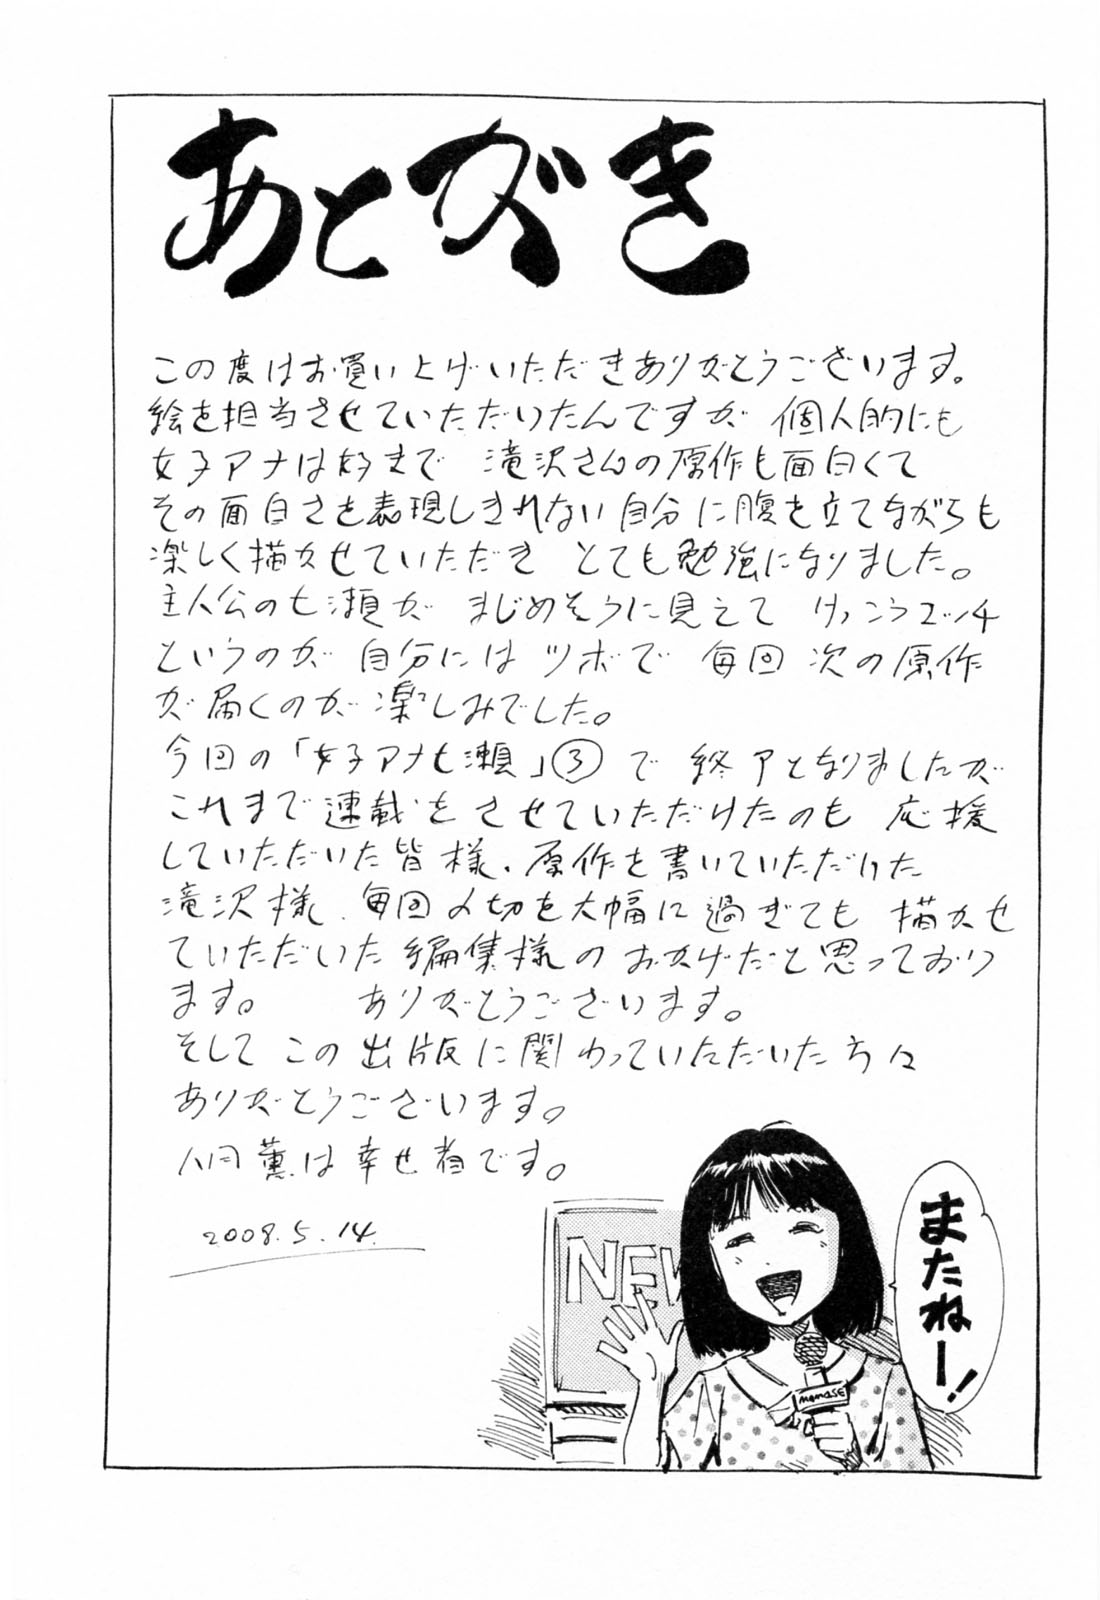 あとがき
この度はお買い上げいただきありがとうございます。
絵を担当させていただいたんですが 個人的にも
女子アナは好きで 滝沢さんの原作も面白くて
その面白さを表現しきれない自分に腹を立てながらも
楽しく描かせていただき とても勉強になりました。
主人公の七瀬が まじめそうに見えて けっこうエッチ
というのが 自分にはツボで 毎回 次の原作
が届くのが楽しみでした。
今回の「女子アナ七瀬」③で 終了となりましたが
これまで連載をさせていただけたのも 応援
していただいた皆様、原作を書いていただけた
滝沢様、毎回〆切を大幅に過ぎても 描かせ
ていただいた編集様のおかげだと思っており
ます。 ありがとうございます。
そして この出版に関わっていただいた方々
ありがとうございます。
八月薫は幸せ者です。
2008.5.14.
NEW
nanaSE
またねー!